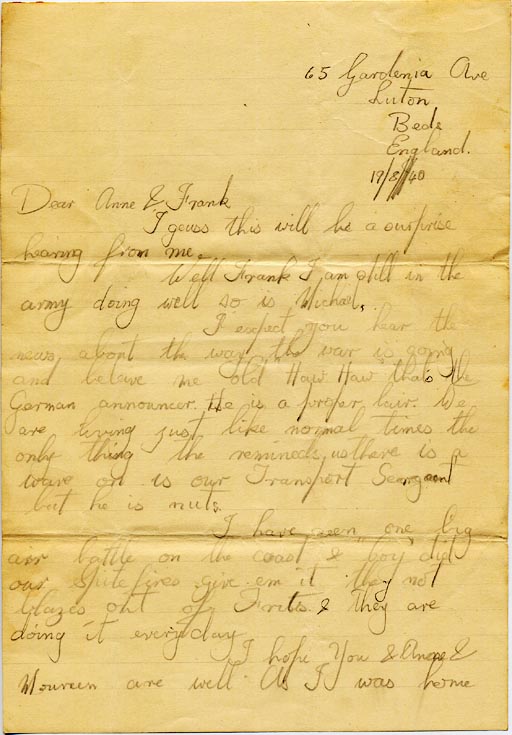 65 Gardenia Ave
Luton
Beds
England.
19/8/40
Dear Anne & Frank
I geuss this will be a surprise
hearing from me.
Well Frank I am still in the
army doing well so is Michael,
I expect you hear the
news, about the way the war is going
and beleive me old Haw Haw thats the
German announcer. He is a proper liar. We
are living just like normal times the
only thing the reminds us there is a
ware on is our Transport Seargent
but he is nuts.
I have seen one big
air battle on the coast & boy did
our Spitefires give em it they not
blazes out of Frits & they are
doing it everyday
I hope You & Anne &
Moureen are well As I was home